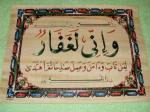 وَإِنِّي لَغَفَّارٌ
لمن تاب وءامن وعمل صالحا ثم اهتدى